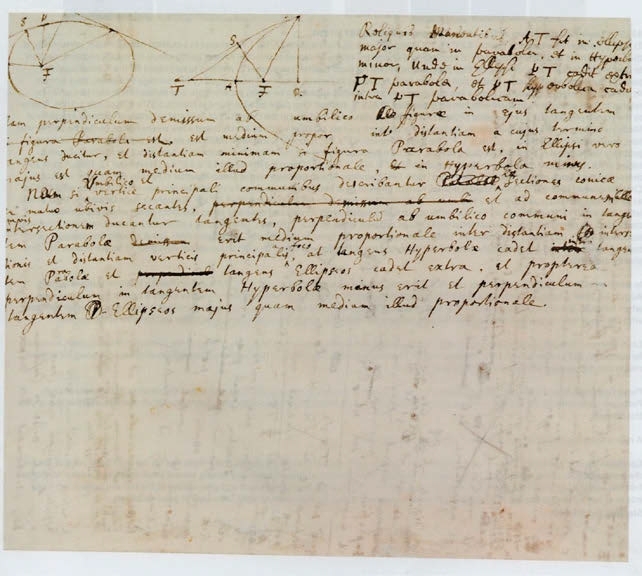 Reliquis AT fit in ellipsi
major quam in parabola et in Hyperbola
minor, unde in Ellipsi PT cadit extra
PT parabolæ, et PT Hyperbolæ cadit
intra PT parabolicam.
perpendiculum demissum ab umbilico figuræ in ejus tangentem
si figura Parabola est est medium propor inter distantiam a cujus termino
tangens ducitur, et distantiam minimam si figura Parabola est, in Ellipsi vero
majus est quam medium illud proportionale, et in Hyperbola minus.
Nam si umbilico et vertice principali communibus describantur Sectiones conicæ
ubivis secantes, perpendiculum demissum ab umb et ad communem
intersectionem ducantur tangentes, perpendiculum ab umbilico communi in tangen
tem Parabolæ erit medium proportionale inter distantiam inters
tionis et distantiam verticis principalis a foco at tangens Hyperbolæ cadet intra tangen
tem Parabolæ et perpendicul tangens Ellipseos cadet extra. et propterea
perpendiculum in tangentem Hyperbolæ minus erit et perpendiculum in
tangentem Ellipseos majus quam medium illud proportionale.
S
P
F
S
T
A
F